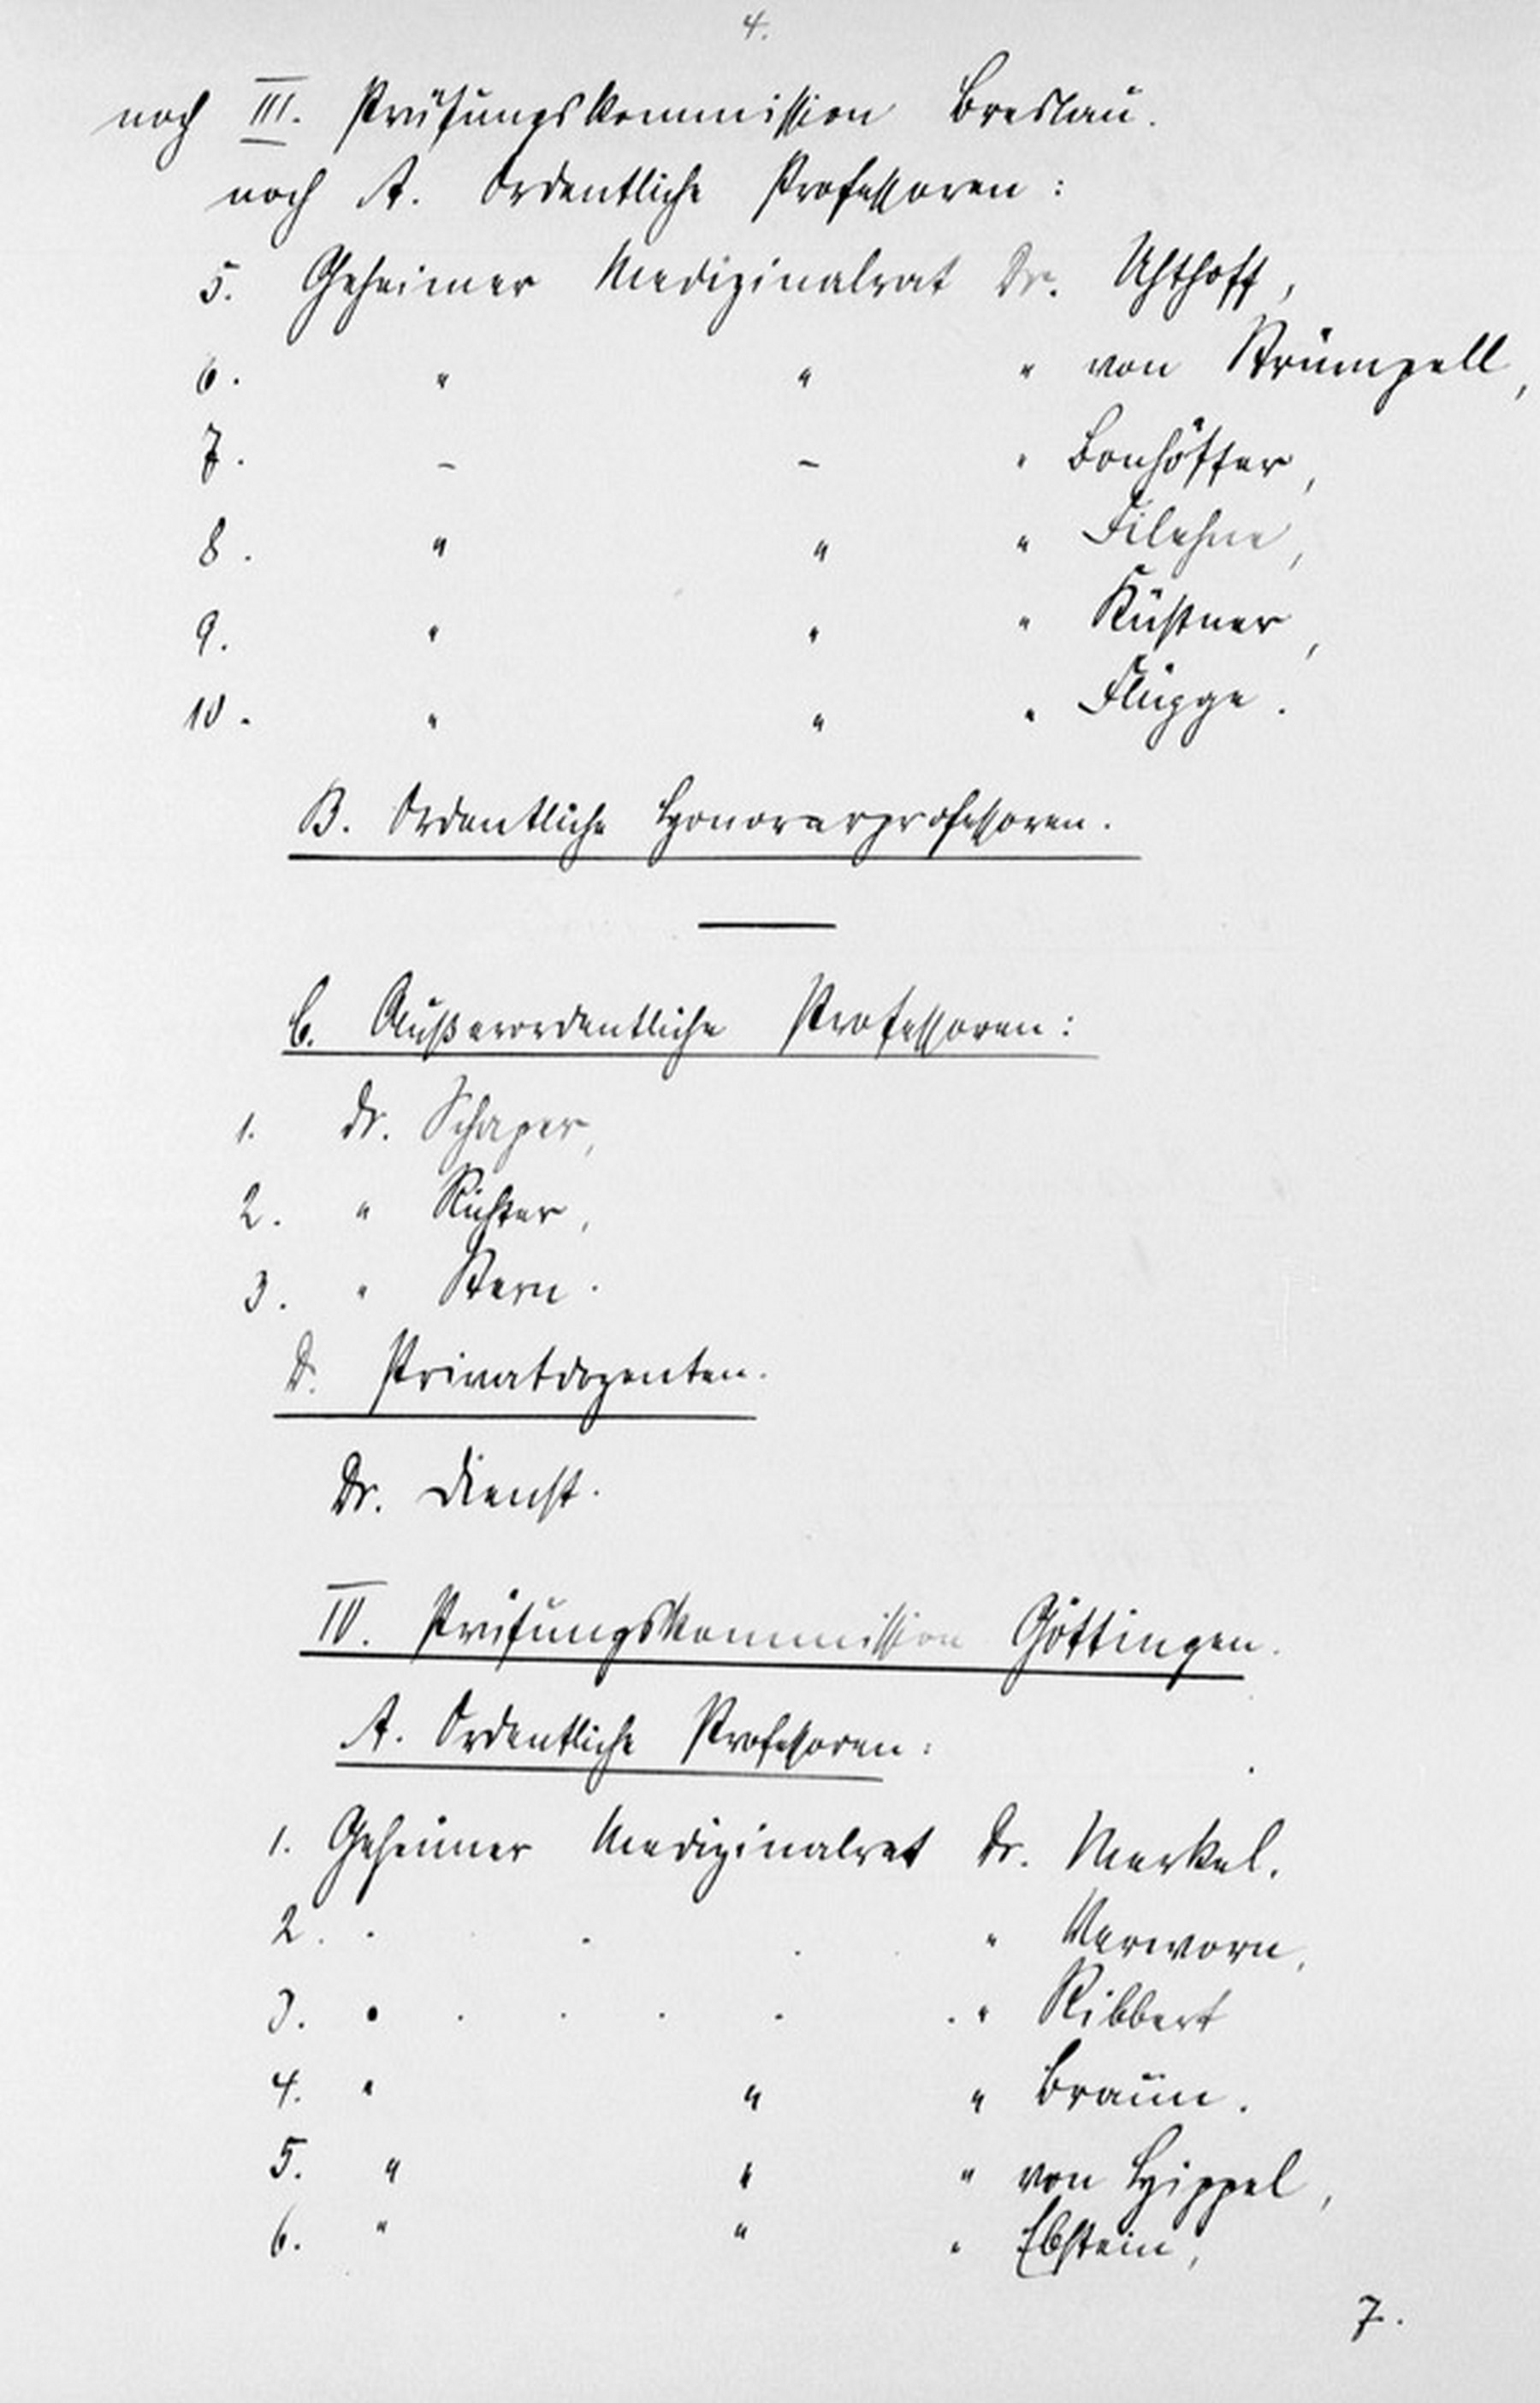 4.
noch III. Prüfungskommission Breslau.
noch A. Ordentliche Professoren:
5. Geheimer Medizinalrat Dr. Uhthoff,
6. " " " von Strümpell,
7. – – " Bonhöffer,
8. " " " Filehne,
9. " " " Küstner,
10. " " " Flügge.
B. Ordentliche Honorarprofessoren.
—
C. Außerordentliche Professoren:
1. Dr. Schaper,
2. " Richter,
3. " Stern.
D. Privatdozenten.
Dr. Dienst.
IV. Prüfungskommission Göttingen.
A. Ordentliche Professoren:
1. Geheimer Medizinalrat Dr. Merkel.
2. " " " Verworn,
3. " " " Ribbert
4. " " " Braun.
5. " " " von Hippel,
6. " " " Ebstein,
7.